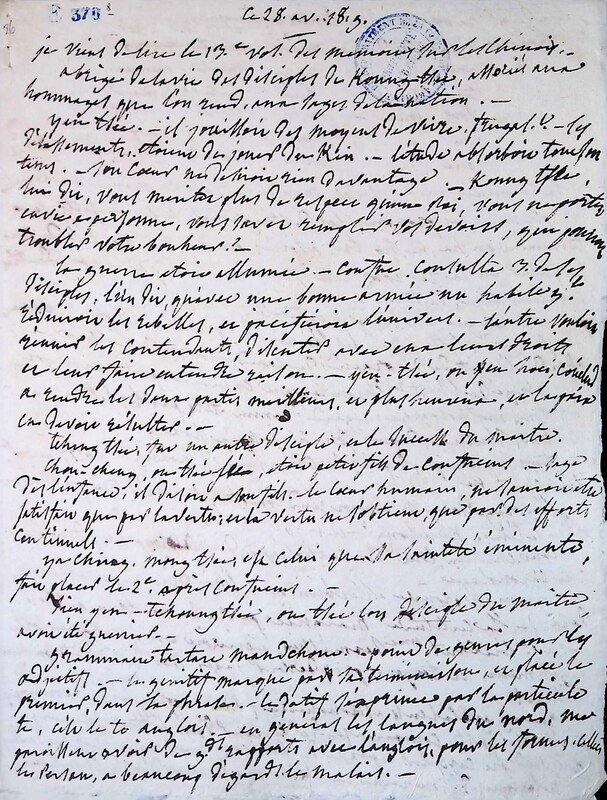 376
ce 28. av. 1819.
je viens de lire le 13.e vol. des memoires sur les chinois. -
abrégé de la vie des disciples de Koung tsée, associés aux
hommages que l'on rend, aux sages de la nation. -
yen tsée. - il jouissoit des moyens de vivre, frugal.t - ses
délassements, étoient de jouer du Kin. - l'étude absorboit tout son
tems. - son coeur ne desiroit rien davantage. - Koung tsée,
lui dit, vous meritez plus de respect qu'un roi, vous ne portez
envie a personne, vous savez remplir vos devoirs, qui pourroit
troubler votre bonheur? -
la guerre étoit allumée. - confuc. consulta 3. de ses
disciples, l'un dit, qu'avec une bonne armée un habile g.l
réduiroit les rebelles, et pacifieroit l'univers. - l'autre vouloit
réunir les contendants, discuter avec eux leurs droits
et leur faire entendre raison. - yen tsée, ou yen hoei,
a rendre les deux partis meilleurs, et plus heureux, et la paix
en devoit résulter. -
tcheng tsée, fut un autre disciple, et le du maitre.
tsée sse, étoit petit fils de confucius. - sage
dès l'enfance, il disoit a son fils. - le coeur humain, ne sauroit être
satisfait que par la vertu; et la vertu ne s'obtient que par des efforts
continuels. -
ya ching, mong tsée, est celui que sa sainteté éminente,
fait placer le 2.e après confucius. -
jen yen - tchoung tsée, ou tsée lou disciple du maitre,
avoit été guerrier. -
grammaire tartare mandchoue. - point de genres pour les
adjectifs. - le genitif marqué par sa terminaison, est placé le
premier dans la phrase. - le datif s'exprime par la particule
te, c'est le to anglois. - en général les langues du nord, me
paroissent avoir de g.ds rapports avec l'anglois, pour les formes. celles
les Persan, a beaucoup d'égards les malais. -